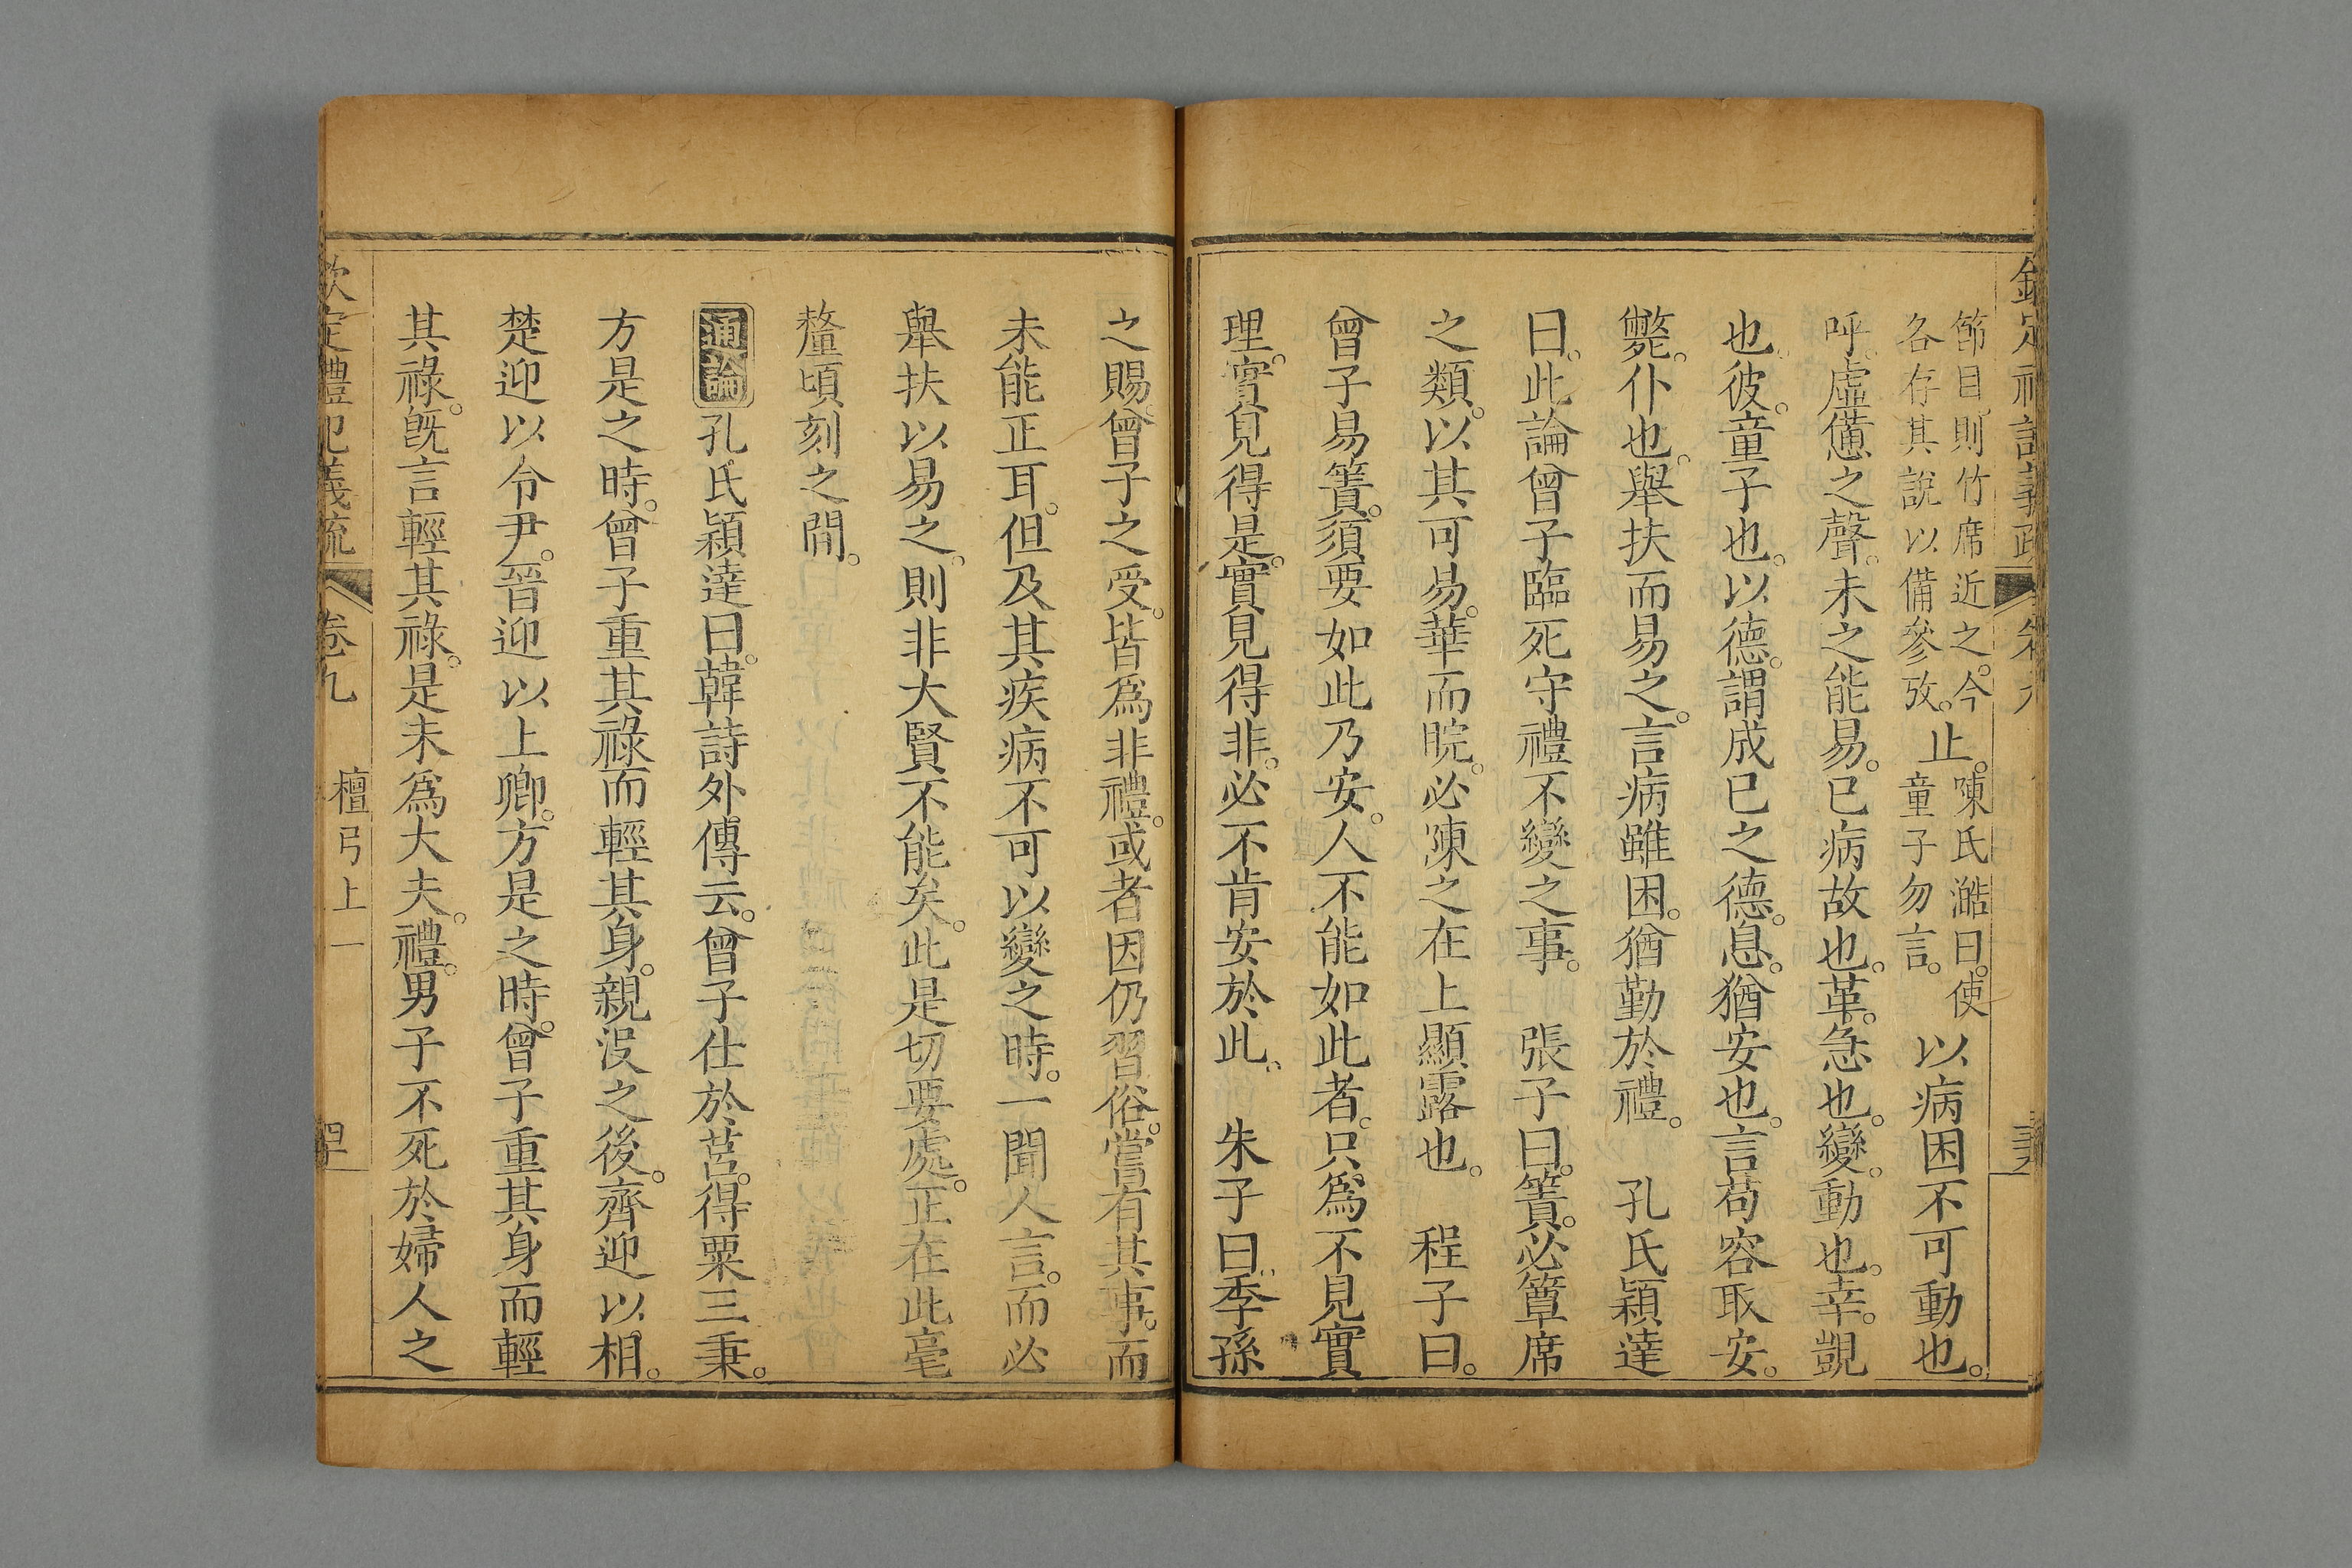 節目則竹席近之今
各存其說以備參攷。
止。
陳氏澔曰使
童子勿言。
以病困不可動也。
呼虛憊之聲。未之能易。已病故也。革。急也。變。動也。幸。覬
也。彼。童子也。以德。謂成已之德。息。猶安也。言苟容取安。
斃。仆也。舉扶而易之。言病雖困。猶勤於禮。　孔氏穎達
曰。此論曾子臨死守禮不變之事。　張子曰。簀。必簟席
之類。以其可易。華而睆。必陳之在上顯露也。　程子曰。
曾子易簀。須要如此乃安。人不能如此者。只爲不見實
理。實見得是。實見得非。必不肯安於此。　朱子曰。季孫
之賜。曾子之受。皆爲非禮。或者因仍習俗。嘗有其事。而
未能正耳。但及其疾病不可以變之時。一聞人言。而必
舉扶以易之。則非大賢不能矣。此是切要處。正在此毫
釐頃刻之間。
通論 孔氏穎達曰。韓詩外傳云。曾子仕於莒。得粟三秉。
方是之時。曾子重其祿而輕其身。親沒之後。齊迎以相。
楚迎以令尹。晉迎以上卿。方是之時。曾子重其身而輕
其祿。旣言輕其祿。是未爲大夫。禮。男子不死於婦人之
欽定禮記義疏 卷九 檀弓上一